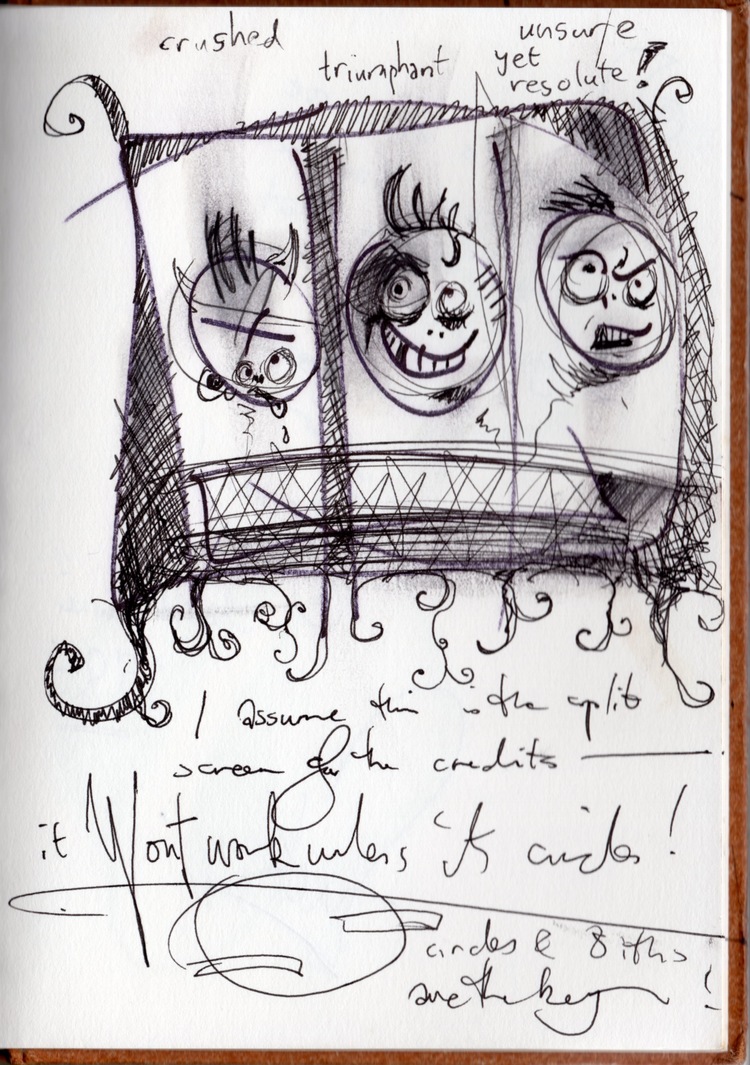 crushed
triumphant
unsure
yet
resolute!
I assume this is the split
screen for the credits
it Wont work unless it's circles!
circles & 8iths
are the key!